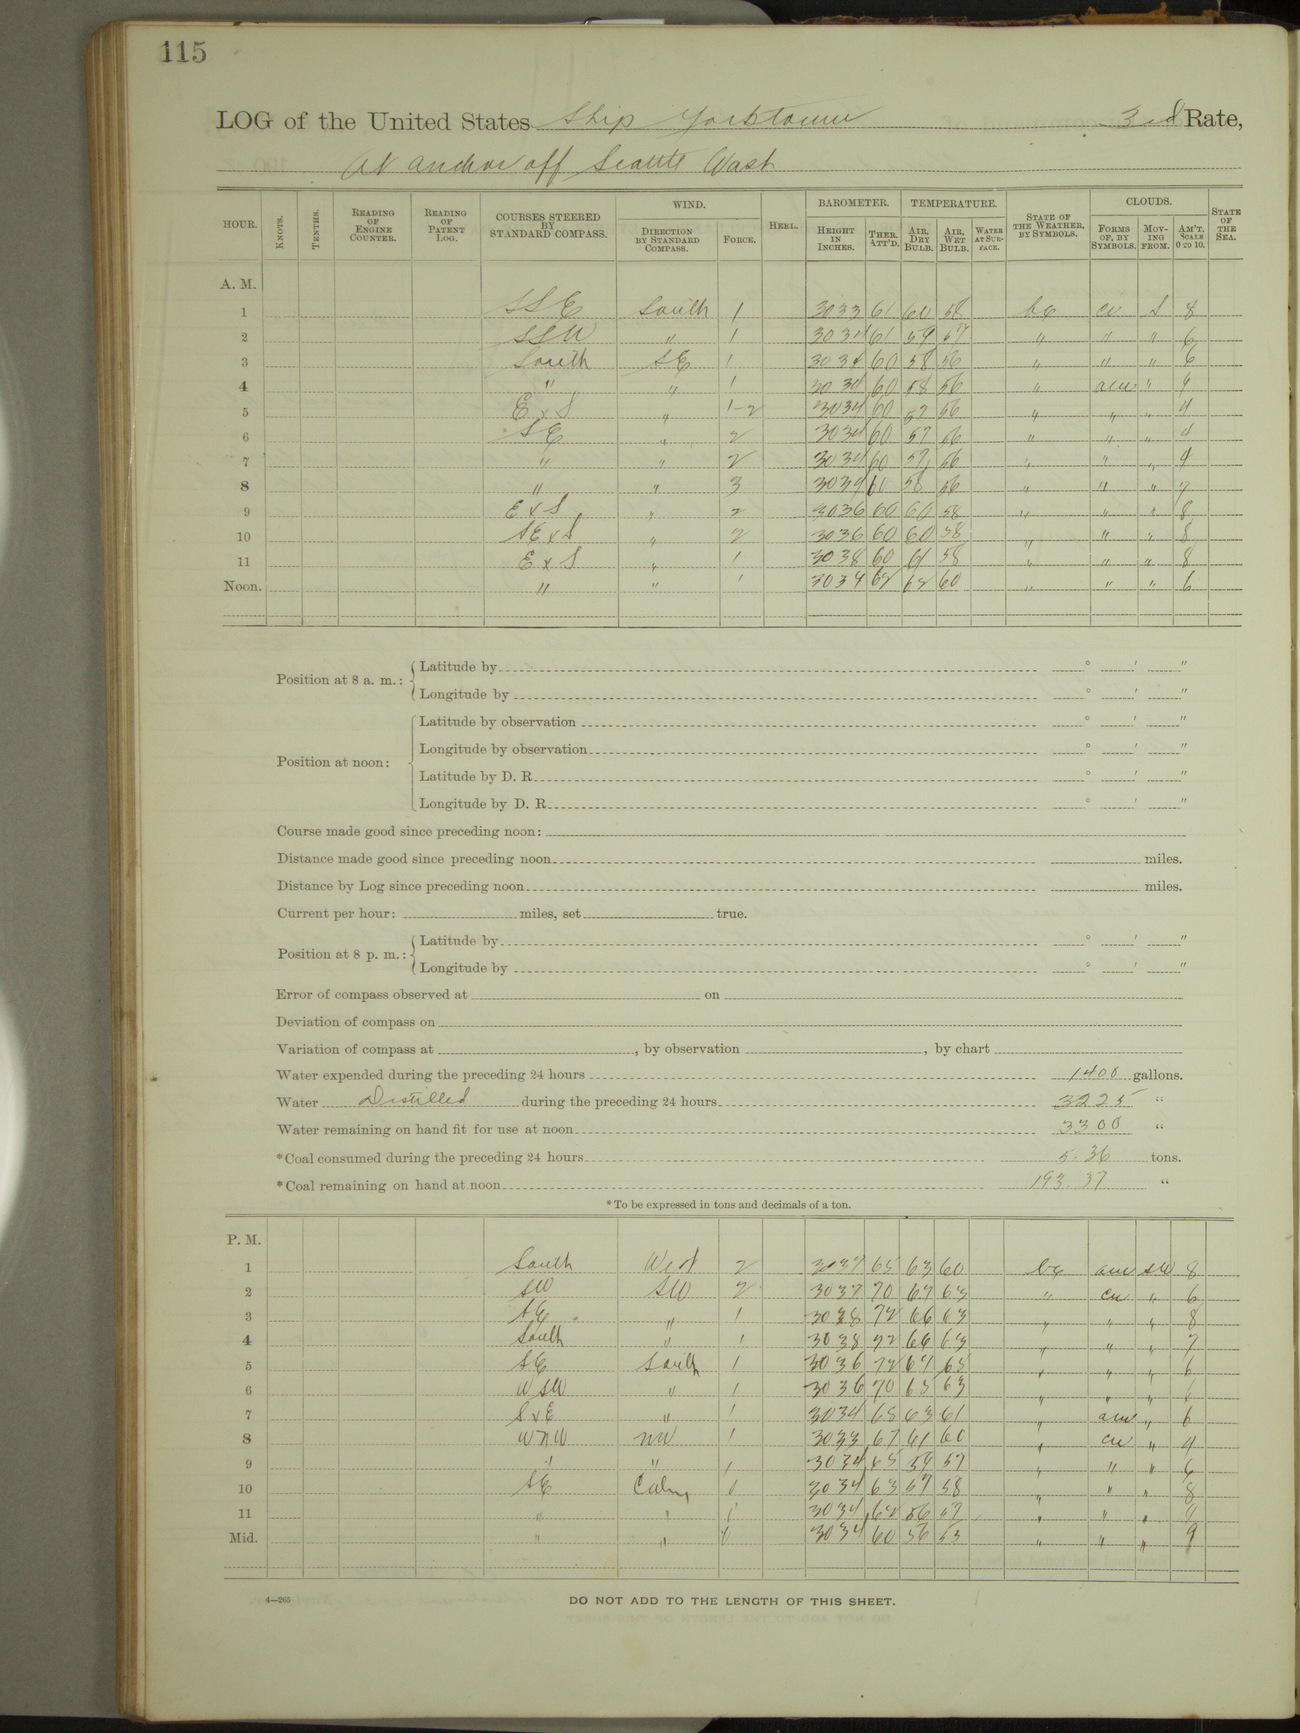 115
LOG of the United States Ship Yorktown 3rd Rate,
At anchor off Seattle Wash
HOUR. KNOTS. TENTHS. READING OF ENGINE COUNTER. READING OF PATENT LOG. COURSES STEERED BY STANDARD COMPASS. WIND. DIRECTION BY STANDARD COMPASS. FORCE. HEEL. BAROMETER. HEIGHT IN INCHES. THER. ATT'D. TEMPERATURE. AIR, DRY BULB. AIR, WET BULB. WATER AT SURFACE. STATE OF THE WEATHER, BY SYMBOLS. CLOUDS. FORMS OF, BY SYMBOLS. MOVING FROM. AM'T. SCALE 0 TO 10. STATE OF THE SEA.
A. M.
1 SSE South 1 3033 61 60 58 bc cu S 8
2 SSW " 1 3034 61 59 57 " " " 6
3 South SE 1 3034 60 58 56 " " " 6
4 " " 1 3034 60 58 56 " "
5 E x S " 1-2 3034 60 57 56 " " " 4
6 SE " 2 3034 60 57 56 " " " 4
7 " " 2 3034 60 57 56 " " " 9
8 " " 3 3034 61 58 56 " " " 7
9 E x S " 2 3036 60 60 58 " " " 8
10 SE x S " 2 3036 60 60 58 " " " 8
11 E x S " 1 3038 60 61 58 " " " 8
Noon. " " 1 3034 62 62 60 " " " 6
Position at 8 a. m.: Latitude by ° ' "
Longitude by ° ' "
Position at noon: Latitude by observation ° ' "
Longitude by observation ° ' "
Latitude by D. R. ° ' "
Longitude by D. R. ° ' "
Course made good since preceding noon:
Distance made good since preceding noon miles.
Distance by Log since preceding noon miles.
Current per hour: miles, set true.
Position at 8 p. m.: Latitude by ° ' "
Longitude by ° ' "
Error of compass observed at on
Deviation of compass on
Variation of compass at , by observation , by chart
Water expended during the preceding 24 hours 1400 gallons.
Water Distilled during the preceding 24 hours 3225 "
Water remaining on hand fit for use at noon 3300 "
*Coal consumed during the preceding 24 hours 5.36 tons.
*Coal remaining on hand at noon 193.37 "
*To be expressed in tons and decimals of a ton.
P. M.
1 South West 2 3037 65 63 60 bc SW 8
2 SW SW 2 3037 70 67 63 " cu " 6
3 " 1 3038 72 66 63 " " " 8
4 South " 1 3038 72 66 63 " " " 7
5 SE South 1 3036 72 67 65 " " " 6
6 WSW " 1 3036 70 65 63 " " "
7 S x E " 1 3034 68 63 61 " " 6
8 WNW NW 1 3033 67 61 60 " cu " 9
9 " " 1 3034 65 59 57 " " " 6
10 SE Calm 3034 63 57 58 " " " 8
11 " " 3034 62 56 57 " " "
Mid. " " 3034 60 56 53 " " " 9
4—265 DO NOT ADD TO THE LENGTH OF THIS SHEET.